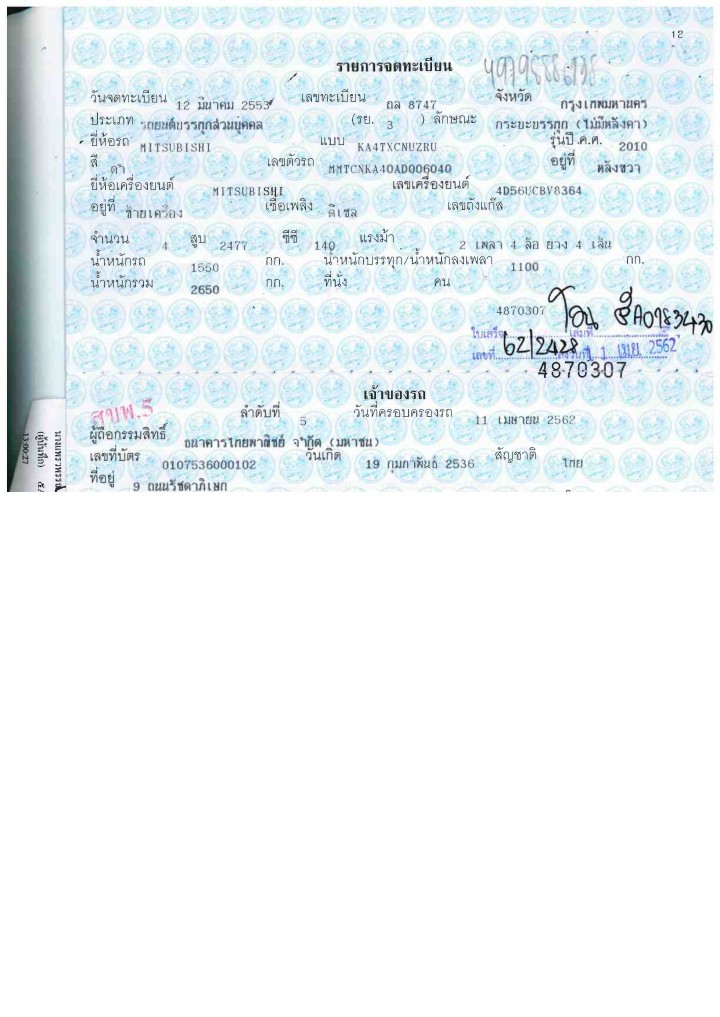 12
รายการจดทะเบียน
วันจดทะเบียน 12 มีนาคม 2553 เลขทะเบียน ถล 8747 จังหวัด กรุงเทพมหานคร
ประเภท รถยนต์บรรทุกส่วนบุคคล (รย. 3 ) ลักษณะ กระบะบรรทุก (ไม่มีหลังคา)
ยี่ห้อรถ MITSUBISHI แบบ KA4TXCNUZRU รุ่นปี ค.ศ. 2010
สี ดำ เลขตัวรถ MMTCNKA40AD006040 อยู่ที่ หลังขวา
ยี่ห้อเครื่องยนต์ MITSUBISHI เลขเครื่องยนต์ 4D56UCBV8364
อยู่ที่ ซ้ายเครื่อง เชื้อเพลิง ดีเซล เลขถังแก๊ส
จำนวน 4 สูบ 2477 ซีซี 140 แรงม้า 2 เพลา 4 ล้อ ยาง 4 เส้น
น้ำหนักรถ 1550 กก. น้ำหนักบรรทุก/น้ำหนักลงเพลา 1100 กก.
น้ำหนักรวม 2650 กก. ที่นั่ง คน
4870307 โอน
ใบเสร็จ เล่มที่
เลขที่ 62/2428 ลงวันที่ 1 1 เม.ย. 2562
4870307
เจ้าของรถ
สบพ.5
ลำดับที่ 5 วันที่ครอบครองรถ 11 เมษายน 2562
ผู้ถือกรรมสิทธิ์ ธนาคารไทยพาณิชย์ จำกัด (มหาชน)
เลขที่บัตร 0107536000102 วันเกิด 19 กุมภาพันธ์ 2536 สัญชาติ ไทย
ที่อยู่ 9 ถนนรัชดาภิเษก
13:00:27